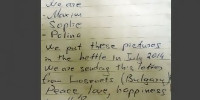 We are
- Maxim
Sophie
- Polina
We put these pictures
in the bottle in July 2018
We are sending this letter
from Lozenets (Bulgary)
Peace, love, happiness